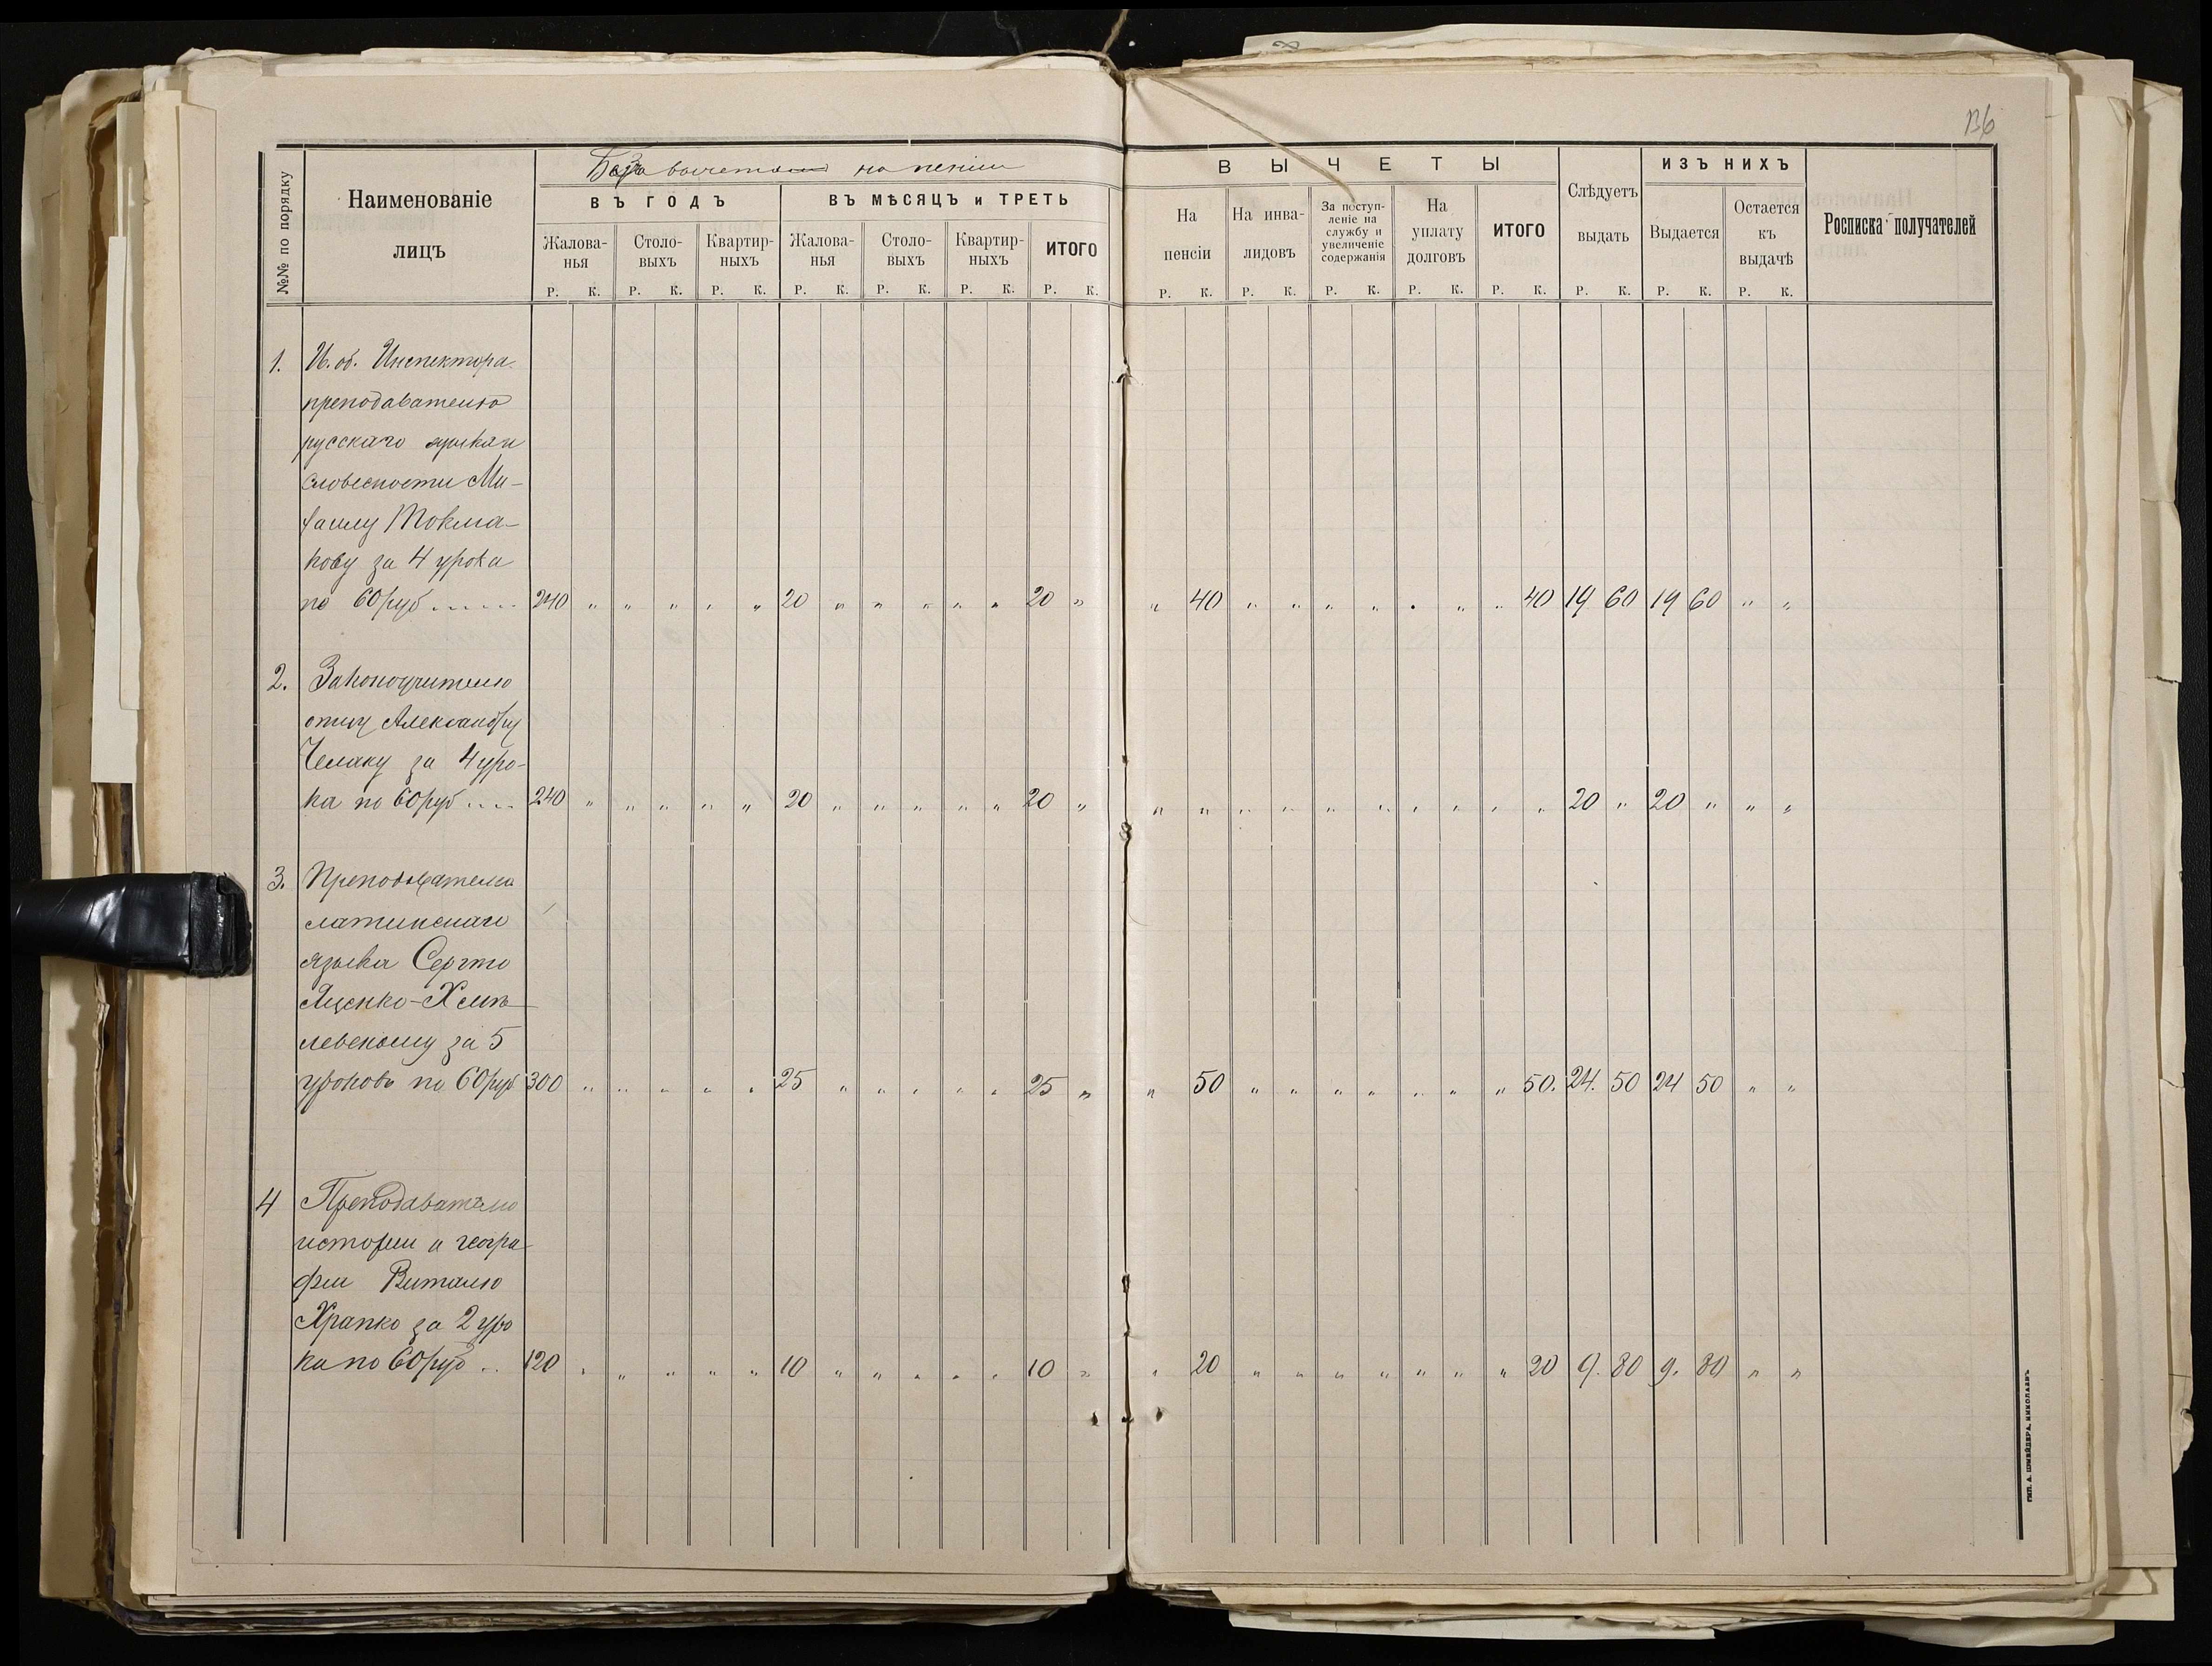 136
№№ по порядку
Наименованіе
лицъ
вычета на пенсіи
ВЪ ГОДЪ
ВЪ МѢСЯЦЪ и ТРЕТЬ
Жалова-
нья
Столо-
выхъ
Квартир-
ныхъ
Жалова-
нья
Столо-
выхъ
Квартир-
ныхъ
ИТОГО
Р. К. Р. К. Р. К. Р. К. Р. К. Р. К. Р. К.
ВЫЧЕТЫ
На
пенсіи
На инва-
лидовъ
За поступ-
леніе на
службу и
увеличеніе
содержанія
На
уплату
долговъ
ИТОГО
Слѣдуетъ
выдать
ИЗЪ НИХЪ
Выдается
Остается
къ
выдачѣ
Росписка получателей
Р. К. Р. К. Р. К. Р. К. Р. К. Р. К. Р. К. Р. К.
1. И. об. Инспектора
преподавателю
русскаго языка и
словесности Ми-
хаилу Токма-
кову за 4 урока
по 60 руб ...... 240 " " " " " 20 " " " " " 20 " " 40 " " " " " " " 40 19 60 19 60 " "
2. Законоучителю
отцу Александру
Челаку за 4 уро-
ка по 60 руб .... 240 " " " " " 20 " " " " " 20 " " " " " " " " " " " 20 " 20 " " "
3. Преподавателю
латинскаго
языка Сергѣю
Яценко-Хмѣ-
левскому за 5
уроковъ по 60 руб 300 " " " " " 25 " " " " " 25 " " 50 " " " " " " " 50. 24. 50 24 50 " "
4 Преподавателю
исторіи и геогра-
фіи Виталію
Храпко за 2 уро
ка по 60 руб .. 120 " " " " " 10 " " " " " 10 " " 20 " " " " " " " 20 9. 80 9. 80 " "
ТИП. А. ШНЕЙДЕРА, НИКОЛАЕВЪ